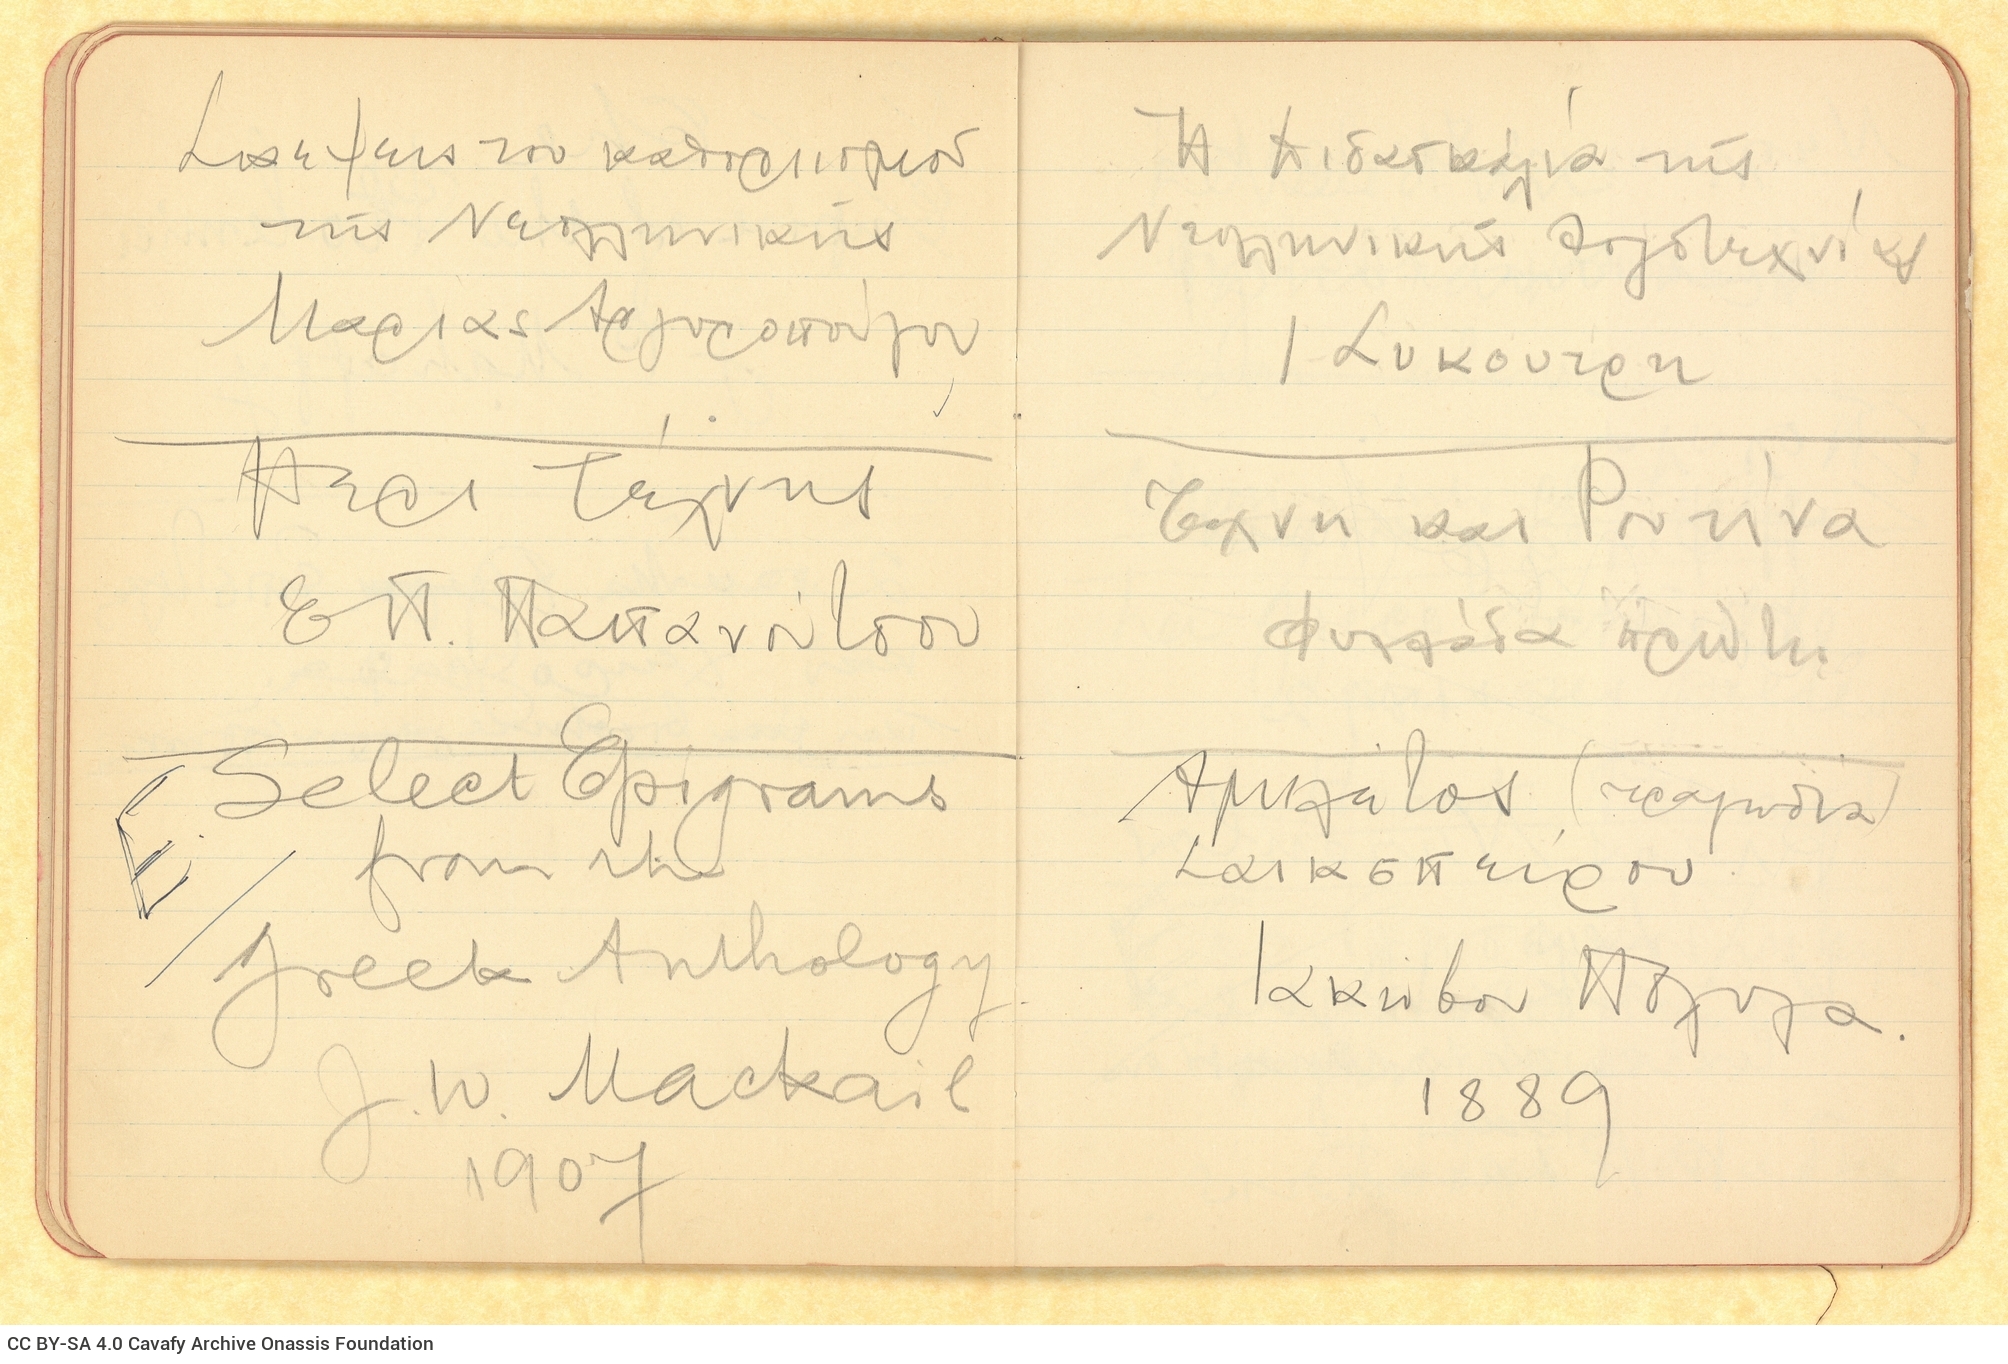 Σκέψεις του καθορισμού
της Νεοελληνικής
Μαρίας Αργυροπούλου
Περί Τέχνης
Ε Π. Παπανούτσου
Ε.
Select Epigrams
from the
Greek Anthology
J. W. Mackail
1907
Η Διδασκαλία της
Νεοελληνικής Λογοτεχνίας
Ι Συκουτρή
Τέχνη και Ρουτίνα
Φυλλάδα πρώτη
Αμλέτος (τραγωδία)
Σαικσπείρου
Ιακώβου Πολυλά.
1889
CC BY-SA 4.0 Cavafy Archive Onassis Foundation